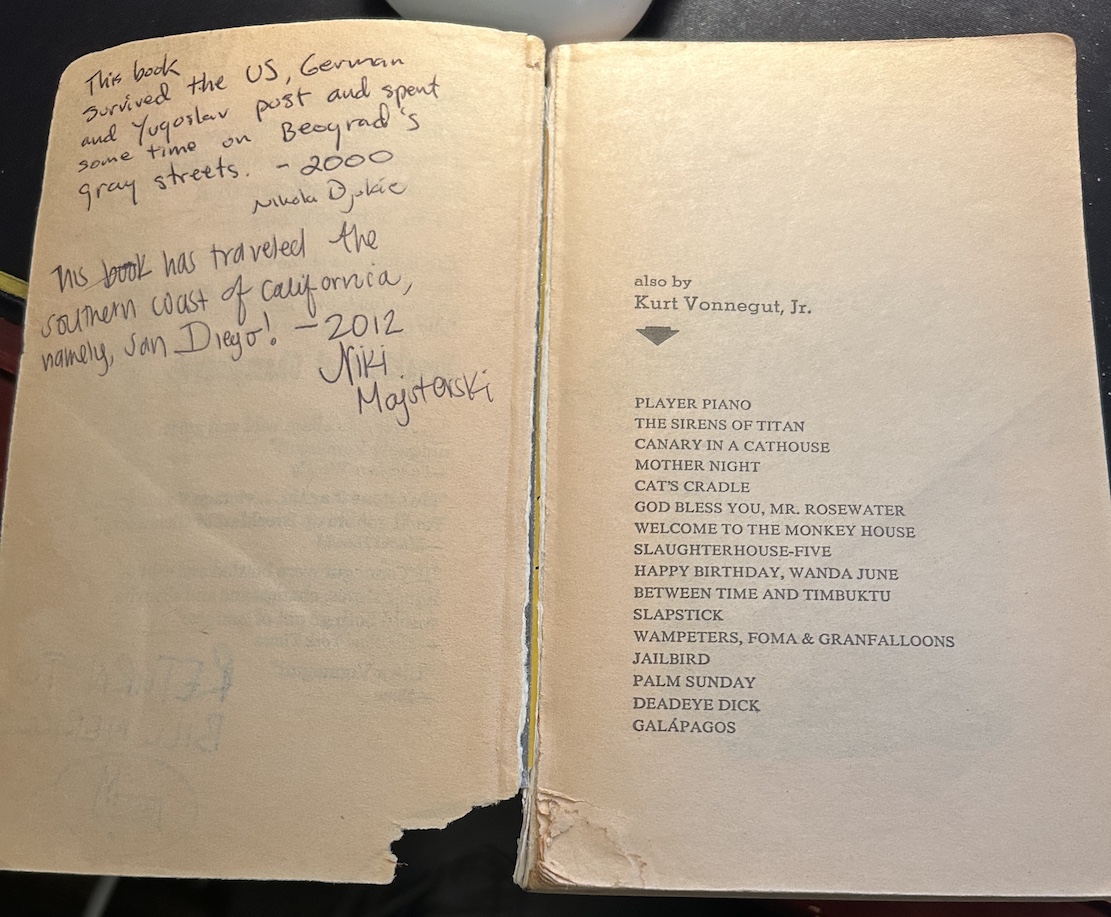 This book
survived the US, German
and Yugoslav post and spent
some time on Beograd's
gray streets. - 2000
Nikola Djokic
This book has traveled the
southern coast of California,
namely, San Diego! - 2012
Niki
Majsterski
RETURN TO
also by
Kurt Vonnegut, Jr.
PLAYER PIANO
THE SIRENS OF TITAN
CANARY IN A CATHOUSE
MOTHER NIGHT
CAT'S CRADLE
GOD BLESS YOU, MR. ROSEWATER
WELCOME TO THE MONKEY HOUSE
SLAUGHTERHOUSE-FIVE
HAPPY BIRTHDAY, WANDA JUNE
BETWEEN TIME AND TIMBUKTU
SLAPSTICK
WAMPETERS, FOMA & GRANFALLOONS
JAILBIRD
PALM SUNDAY
DEADEYE DICK
GALÁPAGOS